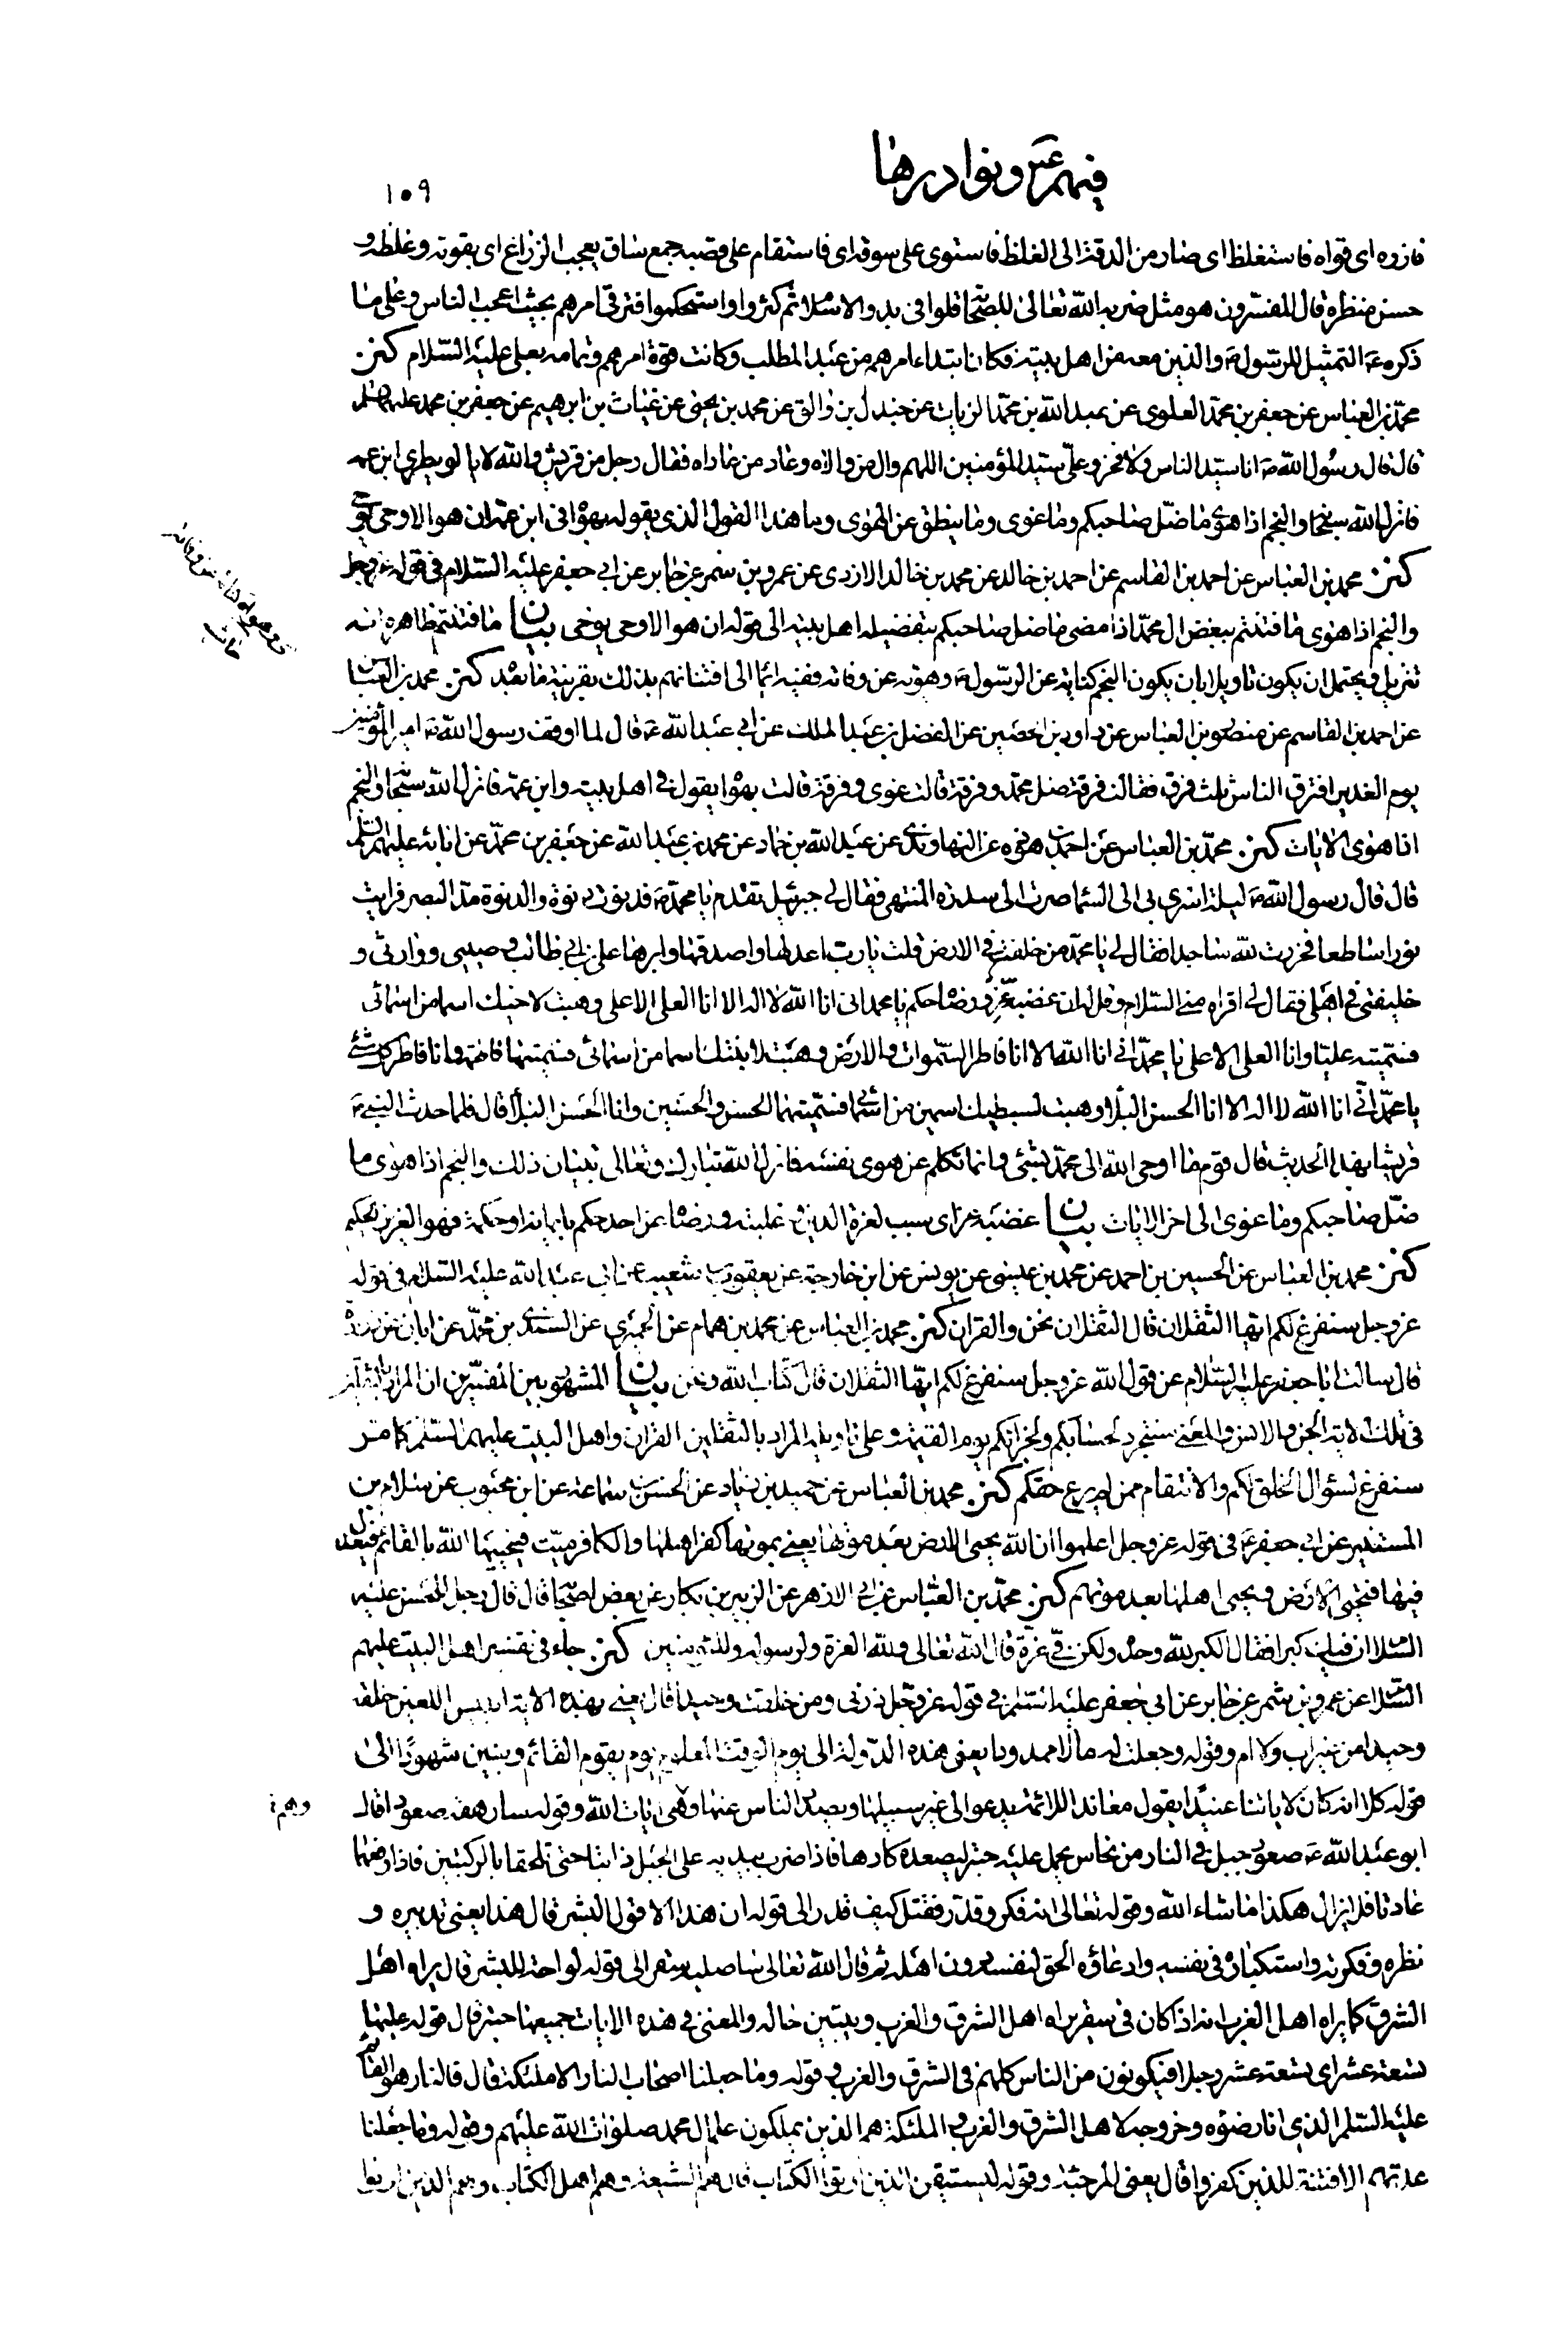 فيهم ع ونوادرها
١٠٩
فازره اى قواه فاستغلظ اى صار من الدقة الى الغلظ فاستوى على سوقه اى فاستقام على قصبه جمع ساق يعجب الزراع اى بقوته وغلظه و
حسن منظره قال المفسرون هو مثل ضربه الله تعالى للصحابة قلوا فى بدو الاسلام ثم كثروا واستحكموا فترقى امرهم بحيث اعجب الناس وعلى ما
ذكره ع التمثيل للرسول ص والذين معه من اهل بيته فكان ابتداء امرهم من عبد المطلب وكانت قوة امرهم وتمامه بعلى عليه السلام كنز
محمد بن العباس عن جعفر بن محمد العلوى عن عبد الله بن محمد الزيات عن جندل بن والق عن محمد بن يحيى عن غياث بن ابرهيم عن جعفر بن محمد عليهما السلم
قال قال رسول الله ص انا سيد الناس ولا فخر وعلى سيد المؤمنين اللهم وال من والاه وعاد من عاداه فقال رجل من قريش والله لا يالو يطرى ابن عمه
فانزل الله سبحانه والنجم اذا هوى ما ضل صاحبكم وما غوى وما ينطق عن الهوى وما هذا القول الذى يقوله بهواه فى ابن عمه ان هو الا وحى يوحى
كنز محمد بن العباس عن احمد بن القاسم عن احمد بن خالد عن محمد بن خالد الازدى عن عمرو بن شمر عن جابر عن ابى جعفر عليه السلام فى قوله عز وجل
والنجم اذا هوى ما فتنتم ببغض ال محمد اذا مضى ما ضل صاحبكم بتفضيله اهل بيته الى قوله ان هو الا وحى يوحى بيان ما فتنتم ظاهره انه
تنزيل ويحتمل ان يكون تاويلا بان يكون النجم كناية عن الرسول ص وهويه عن وفاته ففيه ايماء الى افتتانهم بذلك بقرينة ما بعد كنز محمد بن العباس
عن احمد بن القاسم عن منصور بن العباس عن داود بن الحصين عن الفضل بن عبد الملك عن ابى عبد الله ع قال لما اوقف رسول الله ص امير المؤمنين
يوم الغدير افترق الناس ثلث فرق فقالت فرقة ضل محمد وفرقة قالت غوى وفرقة قالت بهواه يقول فى اهل بيته وابن عمه فانزل الله سبحانه والنجم
اذا هوى الايات كنز محمد بن العباس عن احمد بن هوذه عن النهاوندى عن عبد الله بن حماد عن محمد بن عبد الله عن جعفر بن محمد عن ابائه عليهم السلم
قال قال رسول الله ص ليلة اسرى بى الى السماء صرت الى سدرة المنتهى فقال لى جبرئيل تقدم يا محمد ص فدنوت دنوة والدنوة مد البصر فرايت
نورا ساطعا فخررت لله ساجدا فقال لى يا محمد من خلفت فى الارض قلت يا رب اعدلها واصدقها وابرها على بن ابى طالب وصيى ووارثى و
خليفتى فى اهلى فقال لى اقراه منى السلام وقل له ان غضبه عز ورضاه حكم يا محمد انى انا الله لا اله الا انا العلى الاعلى وهبت لاخيك اسما من اسمائى
فسميته عليا وانا العلى الاعلى يا محمد انى انا الله لا اله الا انا فاطر السموات والارض وهبت لابنتك اسما من اسمائى فسميتها فاطمة وانا فاطر كل شئ
يا محمد انى انا الله لا اله الا انا الحسن البلاء وهبت لسبطيك اسمين من اسمائى فسميتهما الحسن والحسين وانا الحسن البلاء قال فلما حدث النبى ص
قريشا بهذا الحديث قال قوم ما اوحى الله الى محمد بشئ وانما تكلم عن هوى نفسه فانزل الله تبارك وتعالى تبيان ذلك والنجم اذا هوى ما
ضل صاحبكم وما غوى الى اخر الايات بيان غضبه عز اى سبب لعزة الدين وغلبته ورضاه عن احد حكم بايمانه او حكمة فهو العزيز الحكيم
كنز محمد بن العباس عن الحسين بن احمد عن محمد بن عيسى عن يونس عن ابن خارجة عن يعقوب بن شعيب عن ابى عبد الله عليه السلام فى قوله
عز وجل سنفرغ لكم ايها الثقلان قال الثقلان نحن والقران كنز محمد بن العباس عن محمد بن همام عن الحميرى عن السندى بن محمد عن ابان عن زرارة
قال سالت ابا جعفر عليه السلام عن قول الله عز وجل سنفرغ لكم ايها الثقلان قال كتاب الله ونحن بيان المشهور بين المفسرين ان المراد بالثقلين
فى تلك الاية الجن والانس والمعنى سنتجرد لحسابكم ولجزائكم يوم القيمة وعلى تاويله المراد بالثقلين القران واهل البيت عليهم السلم كما مر
سنفرغ لسؤال الخلق لكم والانتقام ممن لم يرع حقكم كنز محمد بن العباس عن حميد بن زياد عن الحسن بن سماعة عن ابن محبوب عن سلام بن
المستنير عن ابى جعفر ع فى قوله عز وجل اعلموا ان الله يحيى الارض بعد موتها يعنى بموتها كفر اهلها والكافر ميت فيحييها الله بالقائم فيعدل
فيها فتحيى الارض ويحيى اهلها بعد موتهم كنز محمد بن العباس عن ابى الازهر عن الزبير بن بكار عن بعض اصحابه قال قال رجل للحسن عليه
السلام ان فيك كبرا فقال الكبر لله وحده ولكن فى عزة قال الله تعالى ولله العزة ولرسوله وللمؤمنين كنز جاء فى تفسير اهل البيت عليهم
السلام عن عمرو بن شمر عن جابر عن ابى جعفر عليه السلم فى قوله عز وجل ذرنى ومن خلقت وحيدا قال يعنى بهذه الاية ابليس اللعين خلقه
وحيدا من غير اب ولا ام وقوله وجعلت له مالا ممدودا يعنى هذه الدولة الى يوم الوقت المعلوم يوم يقوم القائم وبنين شهودا الى
قوله كلا انه كان لاياتنا عنيدا يقول معاندا للائمة يدعو الى غير سبيلها ويصد الناس عنها وهى ايات الله وقوله سارهقه صعودا قال
ابو عبد الله ع صعود جبل فى النار من نحاس يحمل عليه حبتر ليصعده كارها فاذا ضرب بيديه على الجبل ذابتا حتى تلحقا بالركبتين فاذا رفعهما
عادتا فلا يزال هكذا ما شاء الله وقوله تعالى انه فكر وقدر فقتل كيف قدر الى قوله ان هذا الا قول البشر قال هذا يعنى تدبيره و
نظره وفكرته واستكباره فى نفسه وادعاؤه الحق لنفسه دون اهله ثم قال الله تعالى ساصليه سقر الى قوله لواحة للبشر قال يراه اهل
الشرق كما يراه اهل الغرب انه اذا كان فى سقر يراه اهل الشرق والغرب ويتبين حاله والمعنى فى هذه الايات جميعها حبتر قال قوله عليها
تسعة عشر اى تسعة عشر رجلا فيكونون من الناس كلهم فى الشرق والغرب وقوله وما جعلنا اصحاب النار الا ملئكة قال فالنار هو القائم
عليه السلم الذى انار ضوءه وخروجه لاهل الشرق والغرب والملئكة هم الذين يملكون علم ال محمد صلوات الله عليهم وقوله وما جعلنا
عدتهم الا فتنة للذين كفروا قال يعنى المرجئة وقوله ليستيقن الذين اوتوا الكتاب قال هم الشيعة وهم اهل الكتاب وهم الذين اوتوا